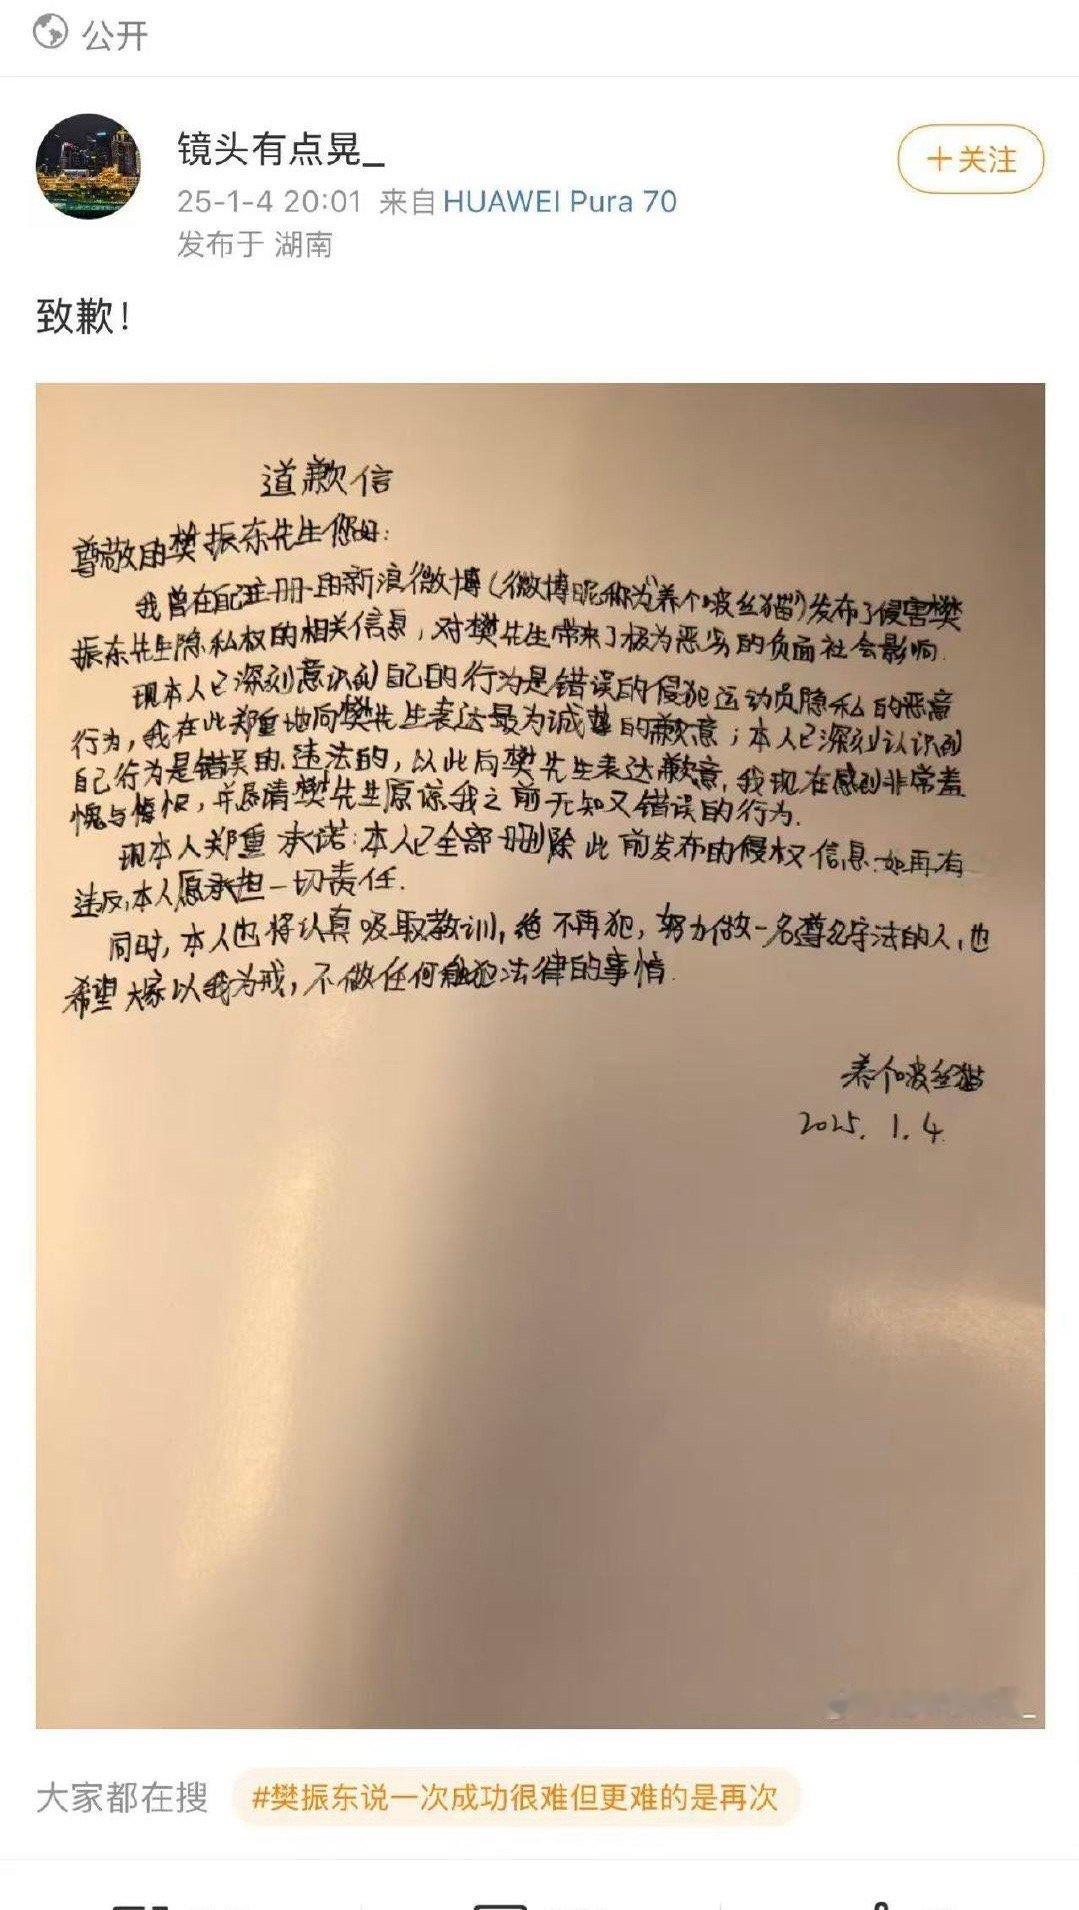 公开
镜头有点晃_
+关注
25-1-4 20:01 来自 HUAWEI Pura 70
发布于 湖南
致歉！
道歉信
尊敬的樊振东先生您好：
我曾在配注册的新浪微博（微博昵称为“养个啵丝猫”）发布了侵害樊
振东先生隐私权的相关信息，对樊先生带来了极为恶劣的负面社会影响.
现本人已深刻意识到自己的行为是错误的侵犯运动员隐私的恶意
行为，我在此郑重地向樊先生表达最为诚挚的歉意；本人已深刻认识到
自己行为是错误的、违法的，以此向樊先生表达歉意，我现在感到非常羞
愧与悔恨，并恳请樊先生原谅我之前无知又错误的行为.
现本人郑重承诺：本人已全部删除此前发布的侵权信息.如再有
违反，本人愿承担一切责任.
同时，本人也将认真吸取教训，绝不再犯，努力做一名遵纪守法的人，也
希望大家以我为戒，不做任何触犯法律的事情.
养个啵丝猫
2025.1.4
大家都在搜 #樊振东说一次成功很难但更难的是再次